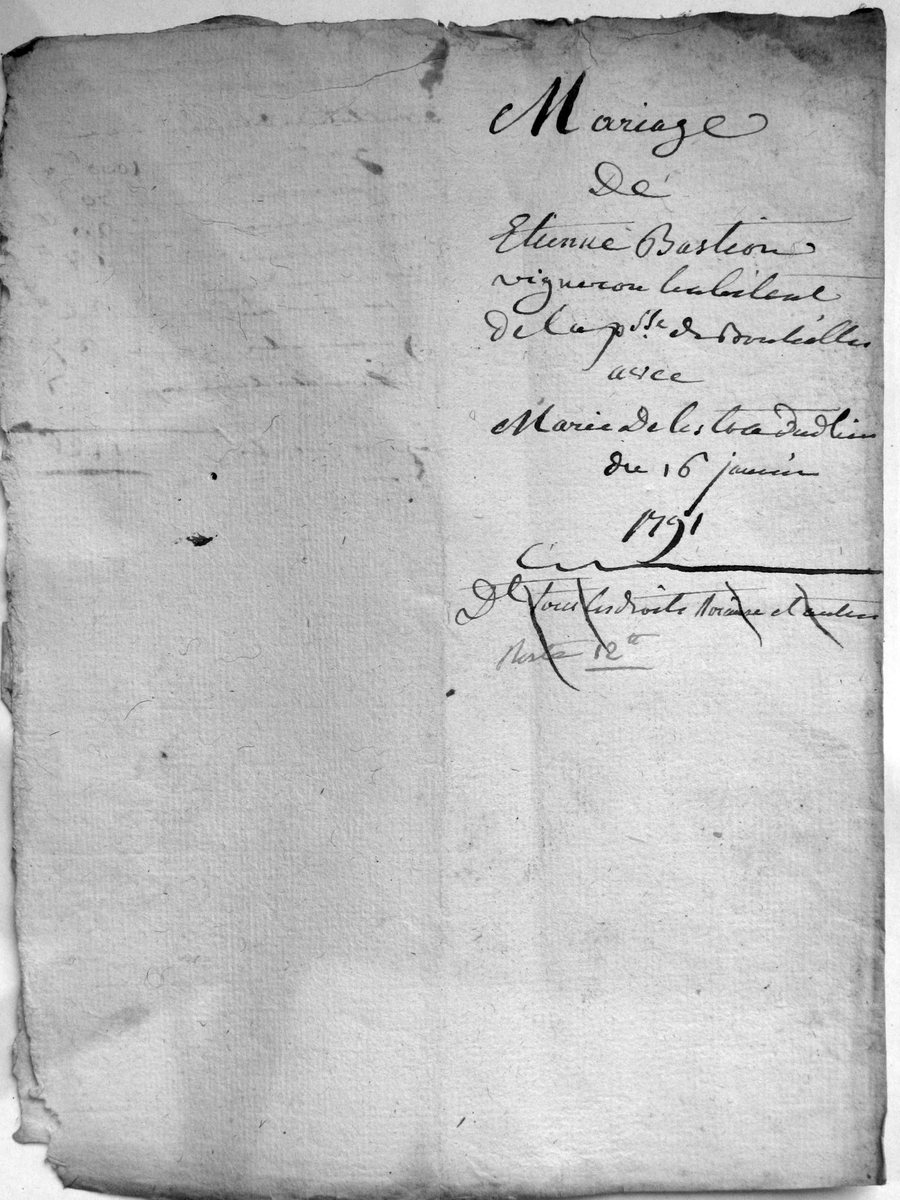 Mariage
De
Etienne Bastion
vigneron habitant
de la p.sse de
avec
Marie De les dud lieu
du 16 janvier
1791
Dt tous les droits et autres
Reste 12tt